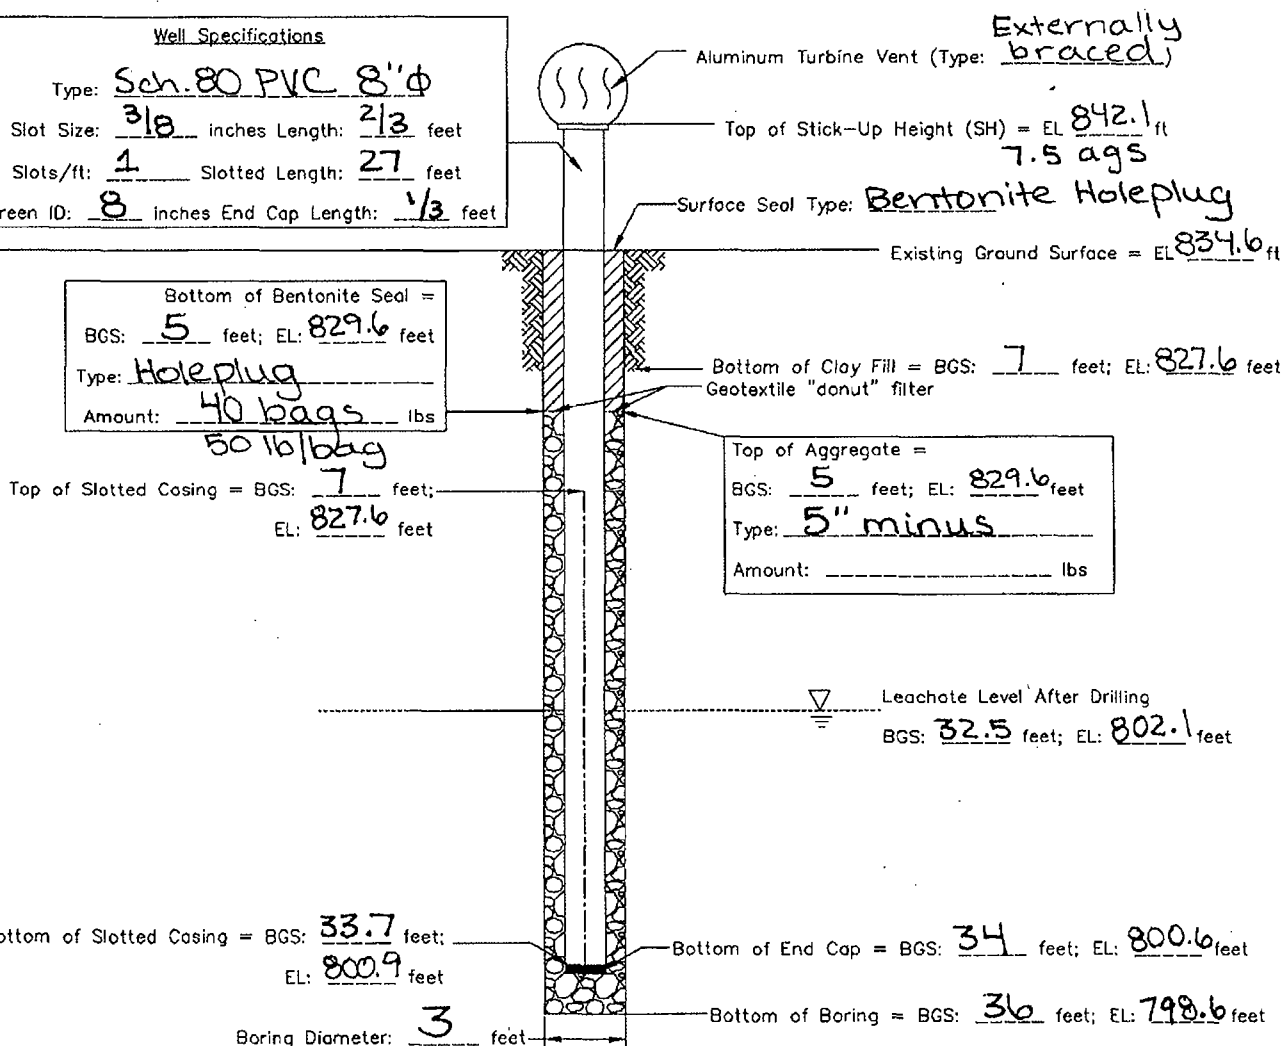 Well Specifications
Type: Sch. 80 PVC 8"ф
Slot Size: 3/8 inches Length: 2/3 feet
Slots/ft: 1 Slotted Length: 27 feet
reen ID: 8 inches End Cap Length: 1/3 feet
Externally
Aluminum Turbine Vent (Type: braced)
Top of Stick-Up Height (SH) = EL 842.1 ft
7.5 ags
Surface Seal Type: Bentonite Holeplug
Existing Ground Surface = EL 834.6 ft
Bottom of Bentonite Seal =
BGS: 5 feet; EL: 829.6 feet
Type: Holeplug
Amount: 40 bags lbs
50 lb/bag
Bottom of Clay Fill = BGS: 7 feet; EL: 827.6 feet
Geotextile "donut" filter
Top of Slotted Casing = BGS: 7 feet;
EL: 827.6 feet
Top of Aggregate =
BGS: 5 feet; EL: 829.6 feet
Type: 5" minus
Amount: lbs
Leachate Level After Drilling
BGS: 32.5 feet; EL: 802.1 feet
ottom of Slotted Casing = BGS: 33.7 feet;
EL: 800.9 feet
Bottom of End Cap = BGS: 34 feet; EL: 800.6 feet
Bottom of Boring = BGS: 36 feet; EL: 798.6 feet
Boring Diameter: 3 feet